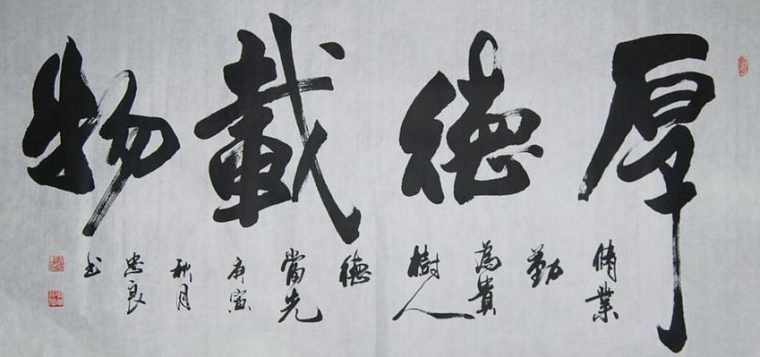 厚德載物
修業
勤
為貴
樹人
德
當先
庚寅
秋月
忠良
书